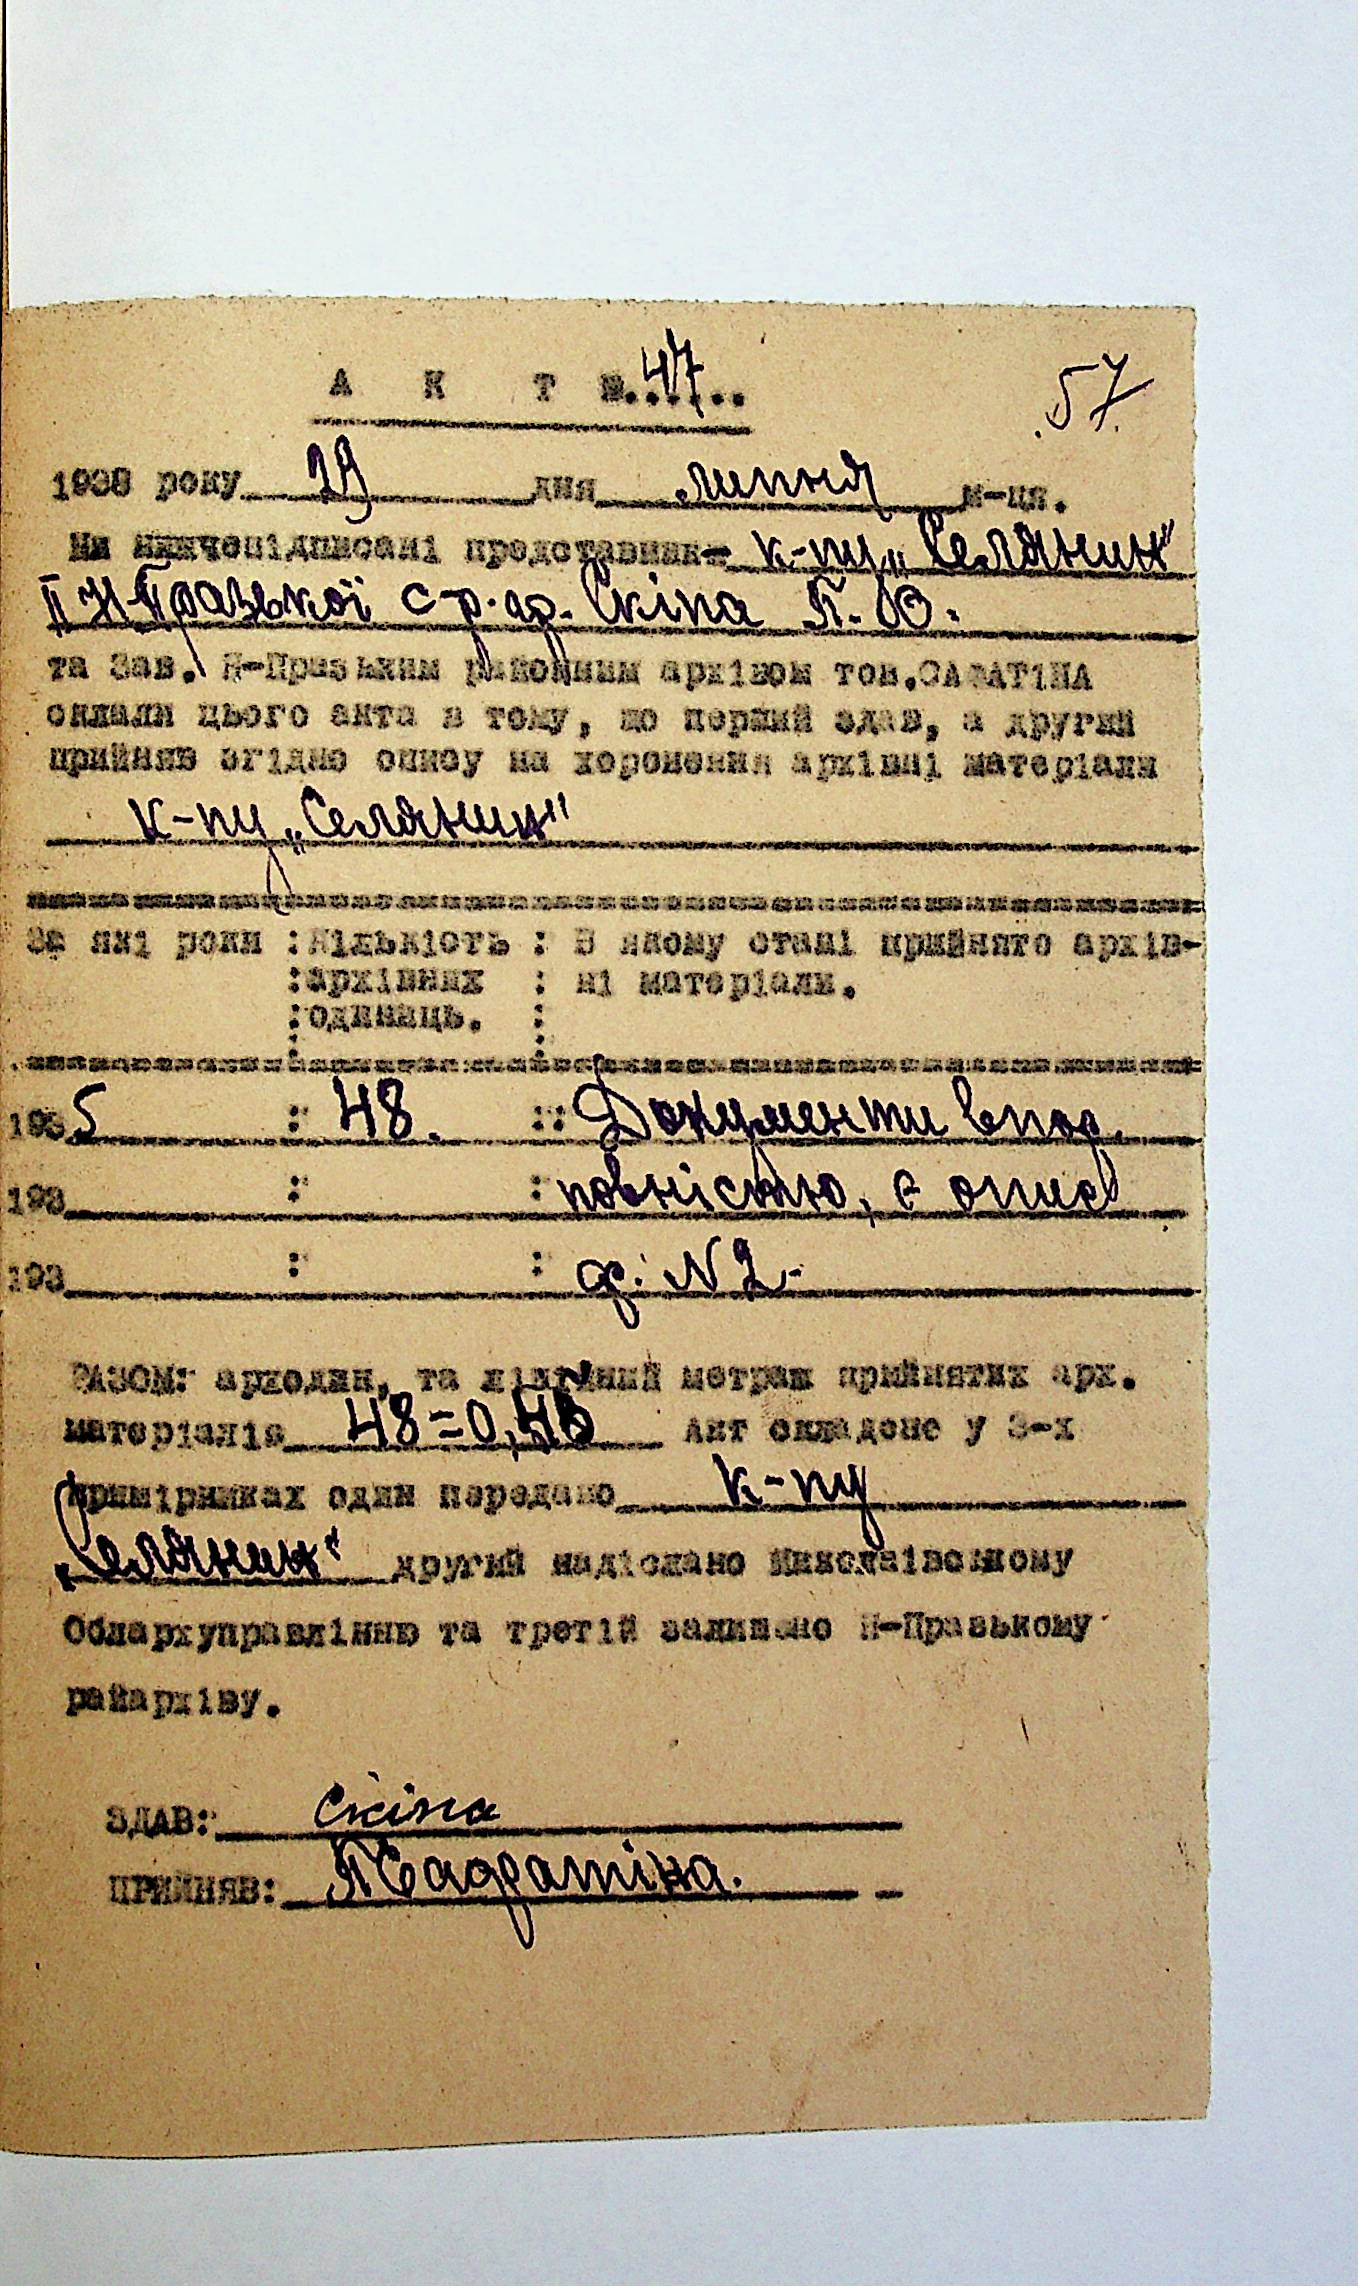 А К Т №.47...
57
1938 року 29 дня липня м-ця.
Ми нижчепідписані представник к-пу „Селянин"
ІІ Н-Празької с-р. ар. Скіпа П. О.
та Зав. Н-Празьким районним архівом тов.САФАТІНА
склали цього акта в тому, що перший здав, а другий
прийняв згідно опису на хоронення архівні матеріали
к-пу „Селянин"
За які роки : Кількість : В якому стані прийнято архів-
: архівних : ні матеріали.
: одиниць. :
1935 : 48. : Документи впор.
193 : : повністю, є опис
193 : : ф. N 2-
РАЗОМ: арходин, та лінійний метраж прийнятих арх.
матеріалів 48=0,48 Акт складено у 3-х
примірниках один передано к-пу
„Селянин" другий надіслано Миколаївському
Облархуправлінню та третій залишено Н-Празькому
райархіву.
ЗДАВ: Скіпа
ПРИЙНЯВ: Сафратіна.